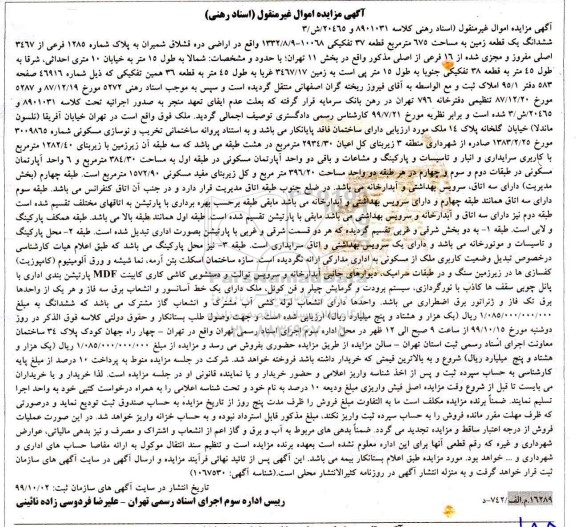 آگهی مزایده اموال غیرمنقول (اسناد رهنی)
آگهی مزایده اموال غیرمنقول (اسناد رهنی کلاسه ۸۹۰۱۰۳۱ و ۲۰۴۶۵/ش/۳
ششدانگ یک قطعه زمین به مساحت ۶۷۵ مترمربع قطعه ۳۷ تفکیکی ۱۰۰۶۸-۱۳۳۲/۸/۹ واقع در اراضی دره قشلاق شمیران به پلاک شماره ۱۲۸۵ فرعی از ۳۴۶۷
اصلی مفروز و مجزی شده از ۱۶ فرعی از اصلی مذکور واقع در بخش ۱۱ تهران؛ با حدود و مشخصات: شمالا به طول ۱۵ متر به خیابان ۱۰ متری احداثی، شرقا به
طول ۴۵ متر به قطعه ۳۸ تفکیکی جنوبا به طول ۱۵ متر پی است به زمین ۳۴۶۷/۱۷ غربا به طول ۴۵ متر به قطعه ۳۶ همین تفکیکی که ذیل شماره ۴۶۹۱۶ صفحه
۵۸۳ دفتر ۹۵/۱ املاک ثبت و مع الواسطه به آقای فیروز ریخته گران اصفهانی منتقل گردیده است و سپس به موجب اسناد رهنی ۵۲۷۲ مورخ ۸۷/۱۲/۱۹ و ۵۲۸۷
مورخ ۸۷/۱۲/۲۰ تنظیمی دفترخانه ۷۹۶ تهران در رهن بانک سرمایه قرار گرفته که بعلت عدم ایفای تعهد منجر به صدور اجرائیه تحت کلاسه ۸۹۰۱۰۳۱ و
۲۰۴۶۵/ش/۳ شده است و برابر نظریه مورخ ۹۹/۷/۲۱ کارشناس رسمی دادگستری توصیف اجمالی گردید. ملک فوق واقع است در تهران خیابان آفریقا (نلسون
ماندلا) خیابان گلخانه پلاک ۱۴ ملک مورد ارزیابی دارای ساختمان فاقد پایانکار می باشد و به استناد پروانه ساختمانی تخریب و نوسازی مسکونی شماره ۳۰۰۹۸۲۵
مورخ ۱۳۸۳/۲/۲۵ صادره از شهرداری منطقه ۳ زیربنای کل اعیان ۲۹۳۴/۳۰ مترمربع در هشت طبقه می باشد که سه طبقه آن زیرزمین با زیربنای ۱۲۸۲/۴۰ مترمربع
با کاربری سرایداری و انبار و تاسیسات و پارکینگ و مشاعات و باقی دو واحد آپارتمان مسکونی در طبقه اول به مساحت ۳۸۴/۳۰ مترمربع و ۶ واحد آپارتمان
مسکونی در طبقات دوم و سوم و چهارم در هر طبقه دو واحد مساحت ۳۹۶/۲۰ متر مربع و کل زیربنای مفید مسکونی ۱۵۷۲/۹۰ مترمربع است. طبقه چهارم (بخش
مدیریت) دارای سه اتاق، سرویس بهداشتی و آبدارخانه می باشد. در ضلع جنوب طبقه اتاق مدیریت قرار دارد و در جنب آن اتاق کنفرانس می باشد. طبقه سوم
دارای سه اتاق همانند طبقه چهارم و دارای سرویس بهداشتی و آبدارخانه می باشد مابقی طبقه برحسب بهره برداری با پارتیشن به اتاقهای مختلف تقسیم شده است
طبقه دوم نیز دارای سه اتاق و آبدارخانه و سرویس بهداشتی می باشد مابقی با پارتیشن تقسیم شده است. طبقه اول همانند طبقه بالا می باشد. طبقه همکف پارکینگ
و لابی است. طبقه ۱- به دو بخش شرقی و غربی تقسیم گردیده که هر دو قسمت شرقی و غربی با پارتیشن بصورت اداری تبدیل شده است. طبقه ۲- محل پارکینگ
و تاسیسات و موتورخانه می باشد و دارای یک سرویس بهداشتی و اتاق سرایداری است. طبقه ۳- نیز محل پارکینگ می باشد که طبق اعلام هیات کارشناسی
درخصوص تبدیل وضعیت کاربری ملک از مسکونی به اداری مدارکی ارائه نگردیده است. سازه ساختمان اسکلت بتن آرمه، نما شیشه و ورق آلومینیوم (کامپوزیت)
کفسازی ها در زیرزمین سنگ و در طبقات سرامیک، دیوارهای جانبی آبدارخانه و سرویس توالت و دستشویی کاشی کاری کابینت MDF پارتیشن بندی اداری با
پانل چوبی سقف ها کاذب با نورپردازی، سیستم برودت و گرمایش چیلر و فن کوئل، ملک دارای یک خط آسانسور و انشعاب برق سه فاز و هر یک از واحدها
برق تک فاز و ژنراتور برق اضطراری می باشد. واحدها دارای انشعاب لوله کشی آب مشترک و انشعاب گاز مشترک می باشد که ششدانگ به مبلغ
۱/۰۸۵/۰۰۰/۰۰۰/۰۰۰ ریال (یک هزار و هشتاد و پنج میلیارد ریال) ارزیابی شده است. و جهت وصول طلب بستانکار و حقوق دولتی کلاسه فوق الذکر در روز
دوشنبه مورخ ۹۹/۱۰/۱۵ از ساعت ۹ صبح الی ۱۲ ظهر در محل اداره سوم اجرای اسناد رسمی تهران واقع در تهران - چهار راه جهان کودک پلاک ۳۴ ساختمان
معاونت اجرای اسناد رسمی ثبت استان تهران - سالن مزایده از طریق مزایده حضوری بفروش می رسد و مزایده از مبلغ ۱/۰۸۵/۰۰۰/۰۰۰/۰۰۰ ریال (یک هزار و
هشتاد و پنج میلیارد ریال) شروع و به بالاترین قیمتی که خریدار داشته باشد فروخته خواهد شد. شرکت در جلسه مزایده منوط به پرداخت ۱۰ درصد از مبلغ پایه
کارشناسی به حساب سپرده ثبت و پس از اخذ شناسه واریز اعلامی و حضور خریدار و یا نماینده قانونی او در جلسه مزایده است. لذا خریدار و یا خریداران
می بایست تا قبل از شروع وقت مزایده اصل فیش واریزی مبلغ ودیعه ۱۰ درصد به نام خود و تحت شناسه اعلامی را به همراه درخواست کتبی خود به واحد اجرا
تسلیم نمایند. ضمناً برنده مزایده مکلف است ما به التفاوت مبلغ فروش را ظرف مدت پنج روز از تاریخ مزایده به حساب صندوق ثبت تودیع نماید و درصورتی
که ظرف مهلت مقرر مانده فروش را به حساب سپرده ثبت واریز نکند، مبلغ مذکور قابل استرداد نبوده و به حساب خزانه واریز خواهد شد. در این صورت عملیات
فروش از درجه اعتبار ساقط و مزایده تجدید می گردد. ضمناً بدهی های مربوط به آب و برق و گاز اعم از انشعاب و اشتراک و مصرف و نیز بدهی مالیاتی، عوارض
شهرداری و غیره که رقم قطعی آنها برای این اداره معلوم نشده است بعهده برنده مزایده است و تنظیم سند انتقال موکول به ارائه مفاصا حساب های اداری و
شهرداری و ... خواهد بود. مورد مزایده طبق اعلام بستانکار بیمه می باشد. این آگهی پس از تائید نهائی فرآیند مزایده و ارسال آگهی در سایت آگهی های سازمان
ثبت قرار خواهد گرفت و به منزله انتشار آگهی در روزنامه کثیرالانتشار محلی است.(شناسه آگهی: ۱۰۶۷۵۳۰)
تاریخ انتشار در سایت آگهی های سازمان ثبت: ۹۹/۱۰/۰۲
رییس اداره سوم اجرای اسناد رسمی تهران - علیرضا فردوسی زاده نائینی
۱۶۲۸۹م.الف/۷۴۲-د